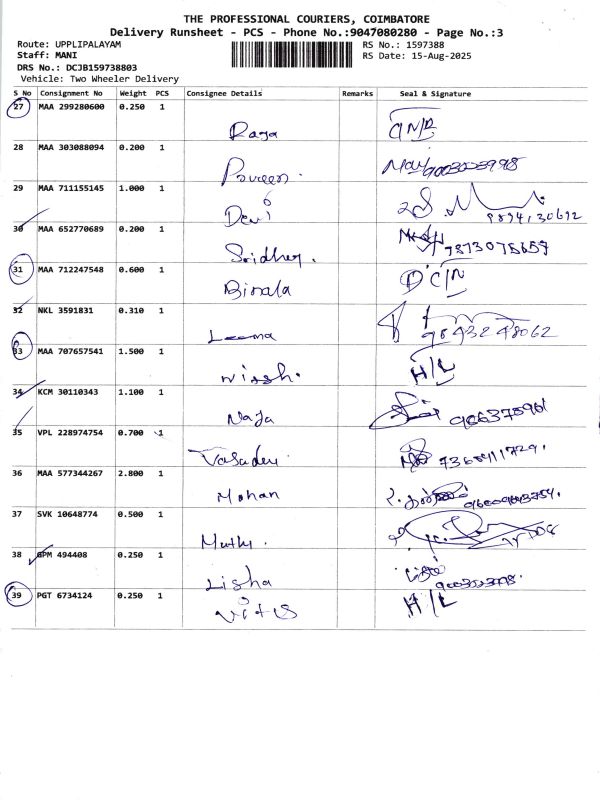 THE PROFESSIONAL COURIERS, COIMBATORE
Delivery Runsheet - PCS - Phone No.:9047080280 - Page No.:3
Route: UPPLIPALAYAM RS No.: 1597388
Staff: MANI RS Date: 15-Aug-2025
DRS No.: DCJB159738803
Vehicle: Two Wheeler Delivery
S No Consignment No Weight PCS Consignee Details Remarks Seal & Signature
27 MAA 299280600 0.250 1
Raja
28 MAA 303088094 0.200 1
Praveen.
29 MAA 711155145 1.000 1
Devi
30 MAA 652770689 0.200 1
Sridher. 7873075657
31 MAA 712247548 0.600 1
Bimala D'C/N
32 NKL 3591831 0.310 1
Leema
33 MAA 707657541 1.500 1
H/L
34 KCM 30110343 1.100 1
Naja
35 VPL 228974754 0.700 1
36 MAA 577344267 2.800 1
Mohan
37 SVK 10648774 0.500 1
Muthu.
38 GPM 494408 0.250 1
Lisha
39 PGT 6734124 0.250 1
H/L